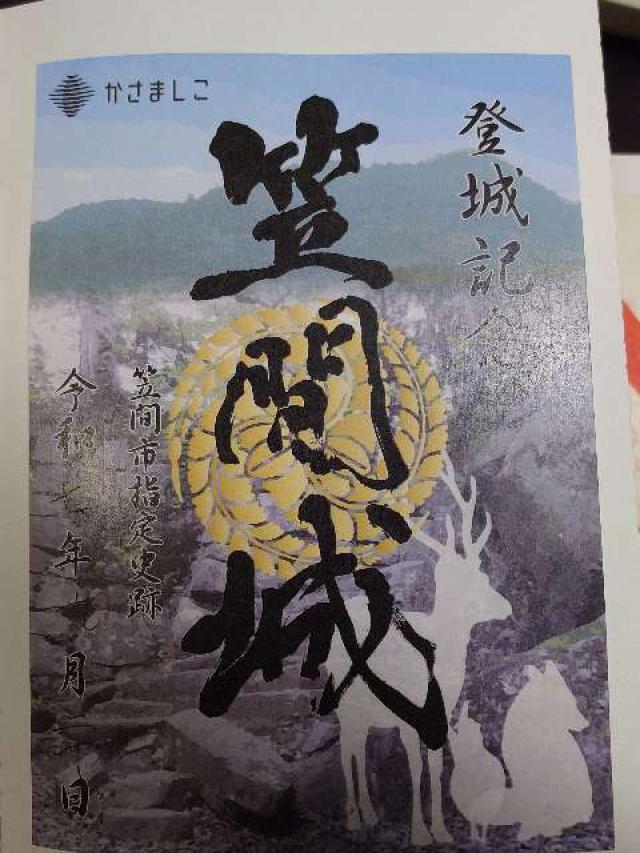 かさましこ
登城記念
笠間城
笠間市指定史跡
令和七年九月二日